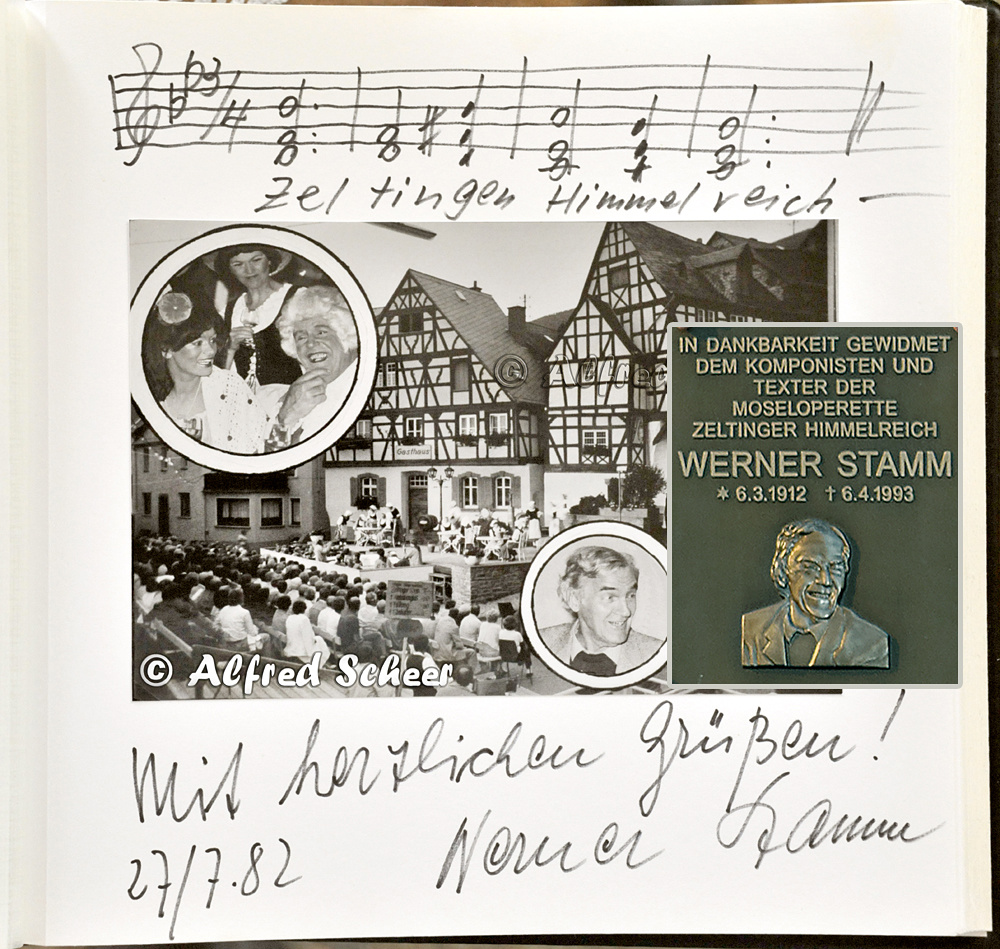 3/4
Zeltingen Himmelreich —
Gasthaus
© Alfred
IN DANKBARKEIT GEWIDMET
DEM KOMPONISTEN UND
TEXTER DER
MOSELOPERETTE
ZELTINGER HIMMELREICH
WERNER STAMM
✶ 6.3.1912 † 6.4.1993
© Alfred Scheer
Mit herzlichen Grüßen!
27/7.82 Werner Stamm